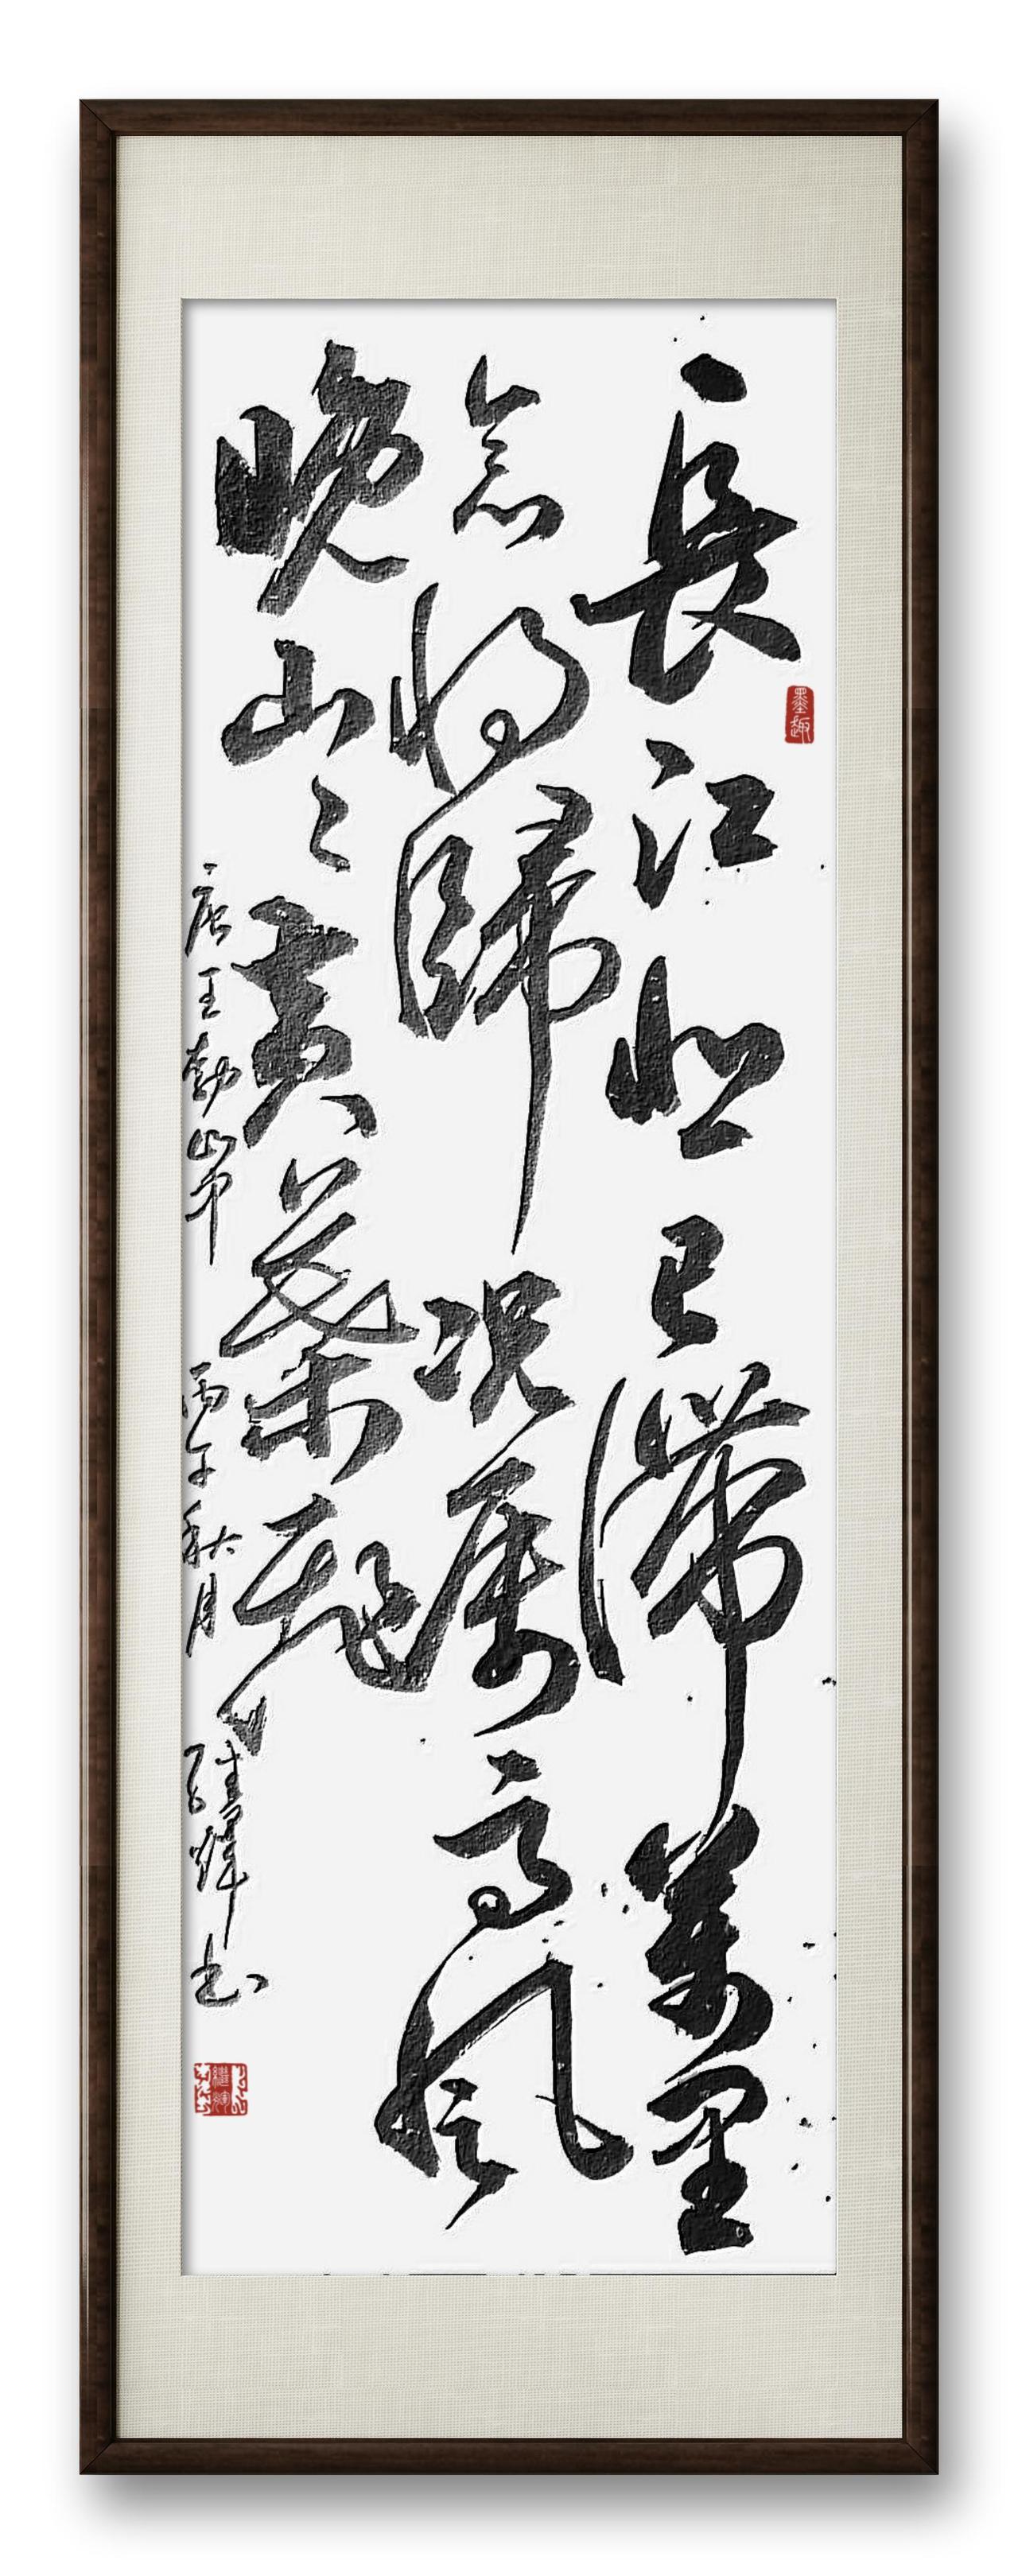 長江悲已滯萬里
念將歸況属高風
晚山〻黄葉飛
唐王勃山中 丙午秋月 書
墨趣